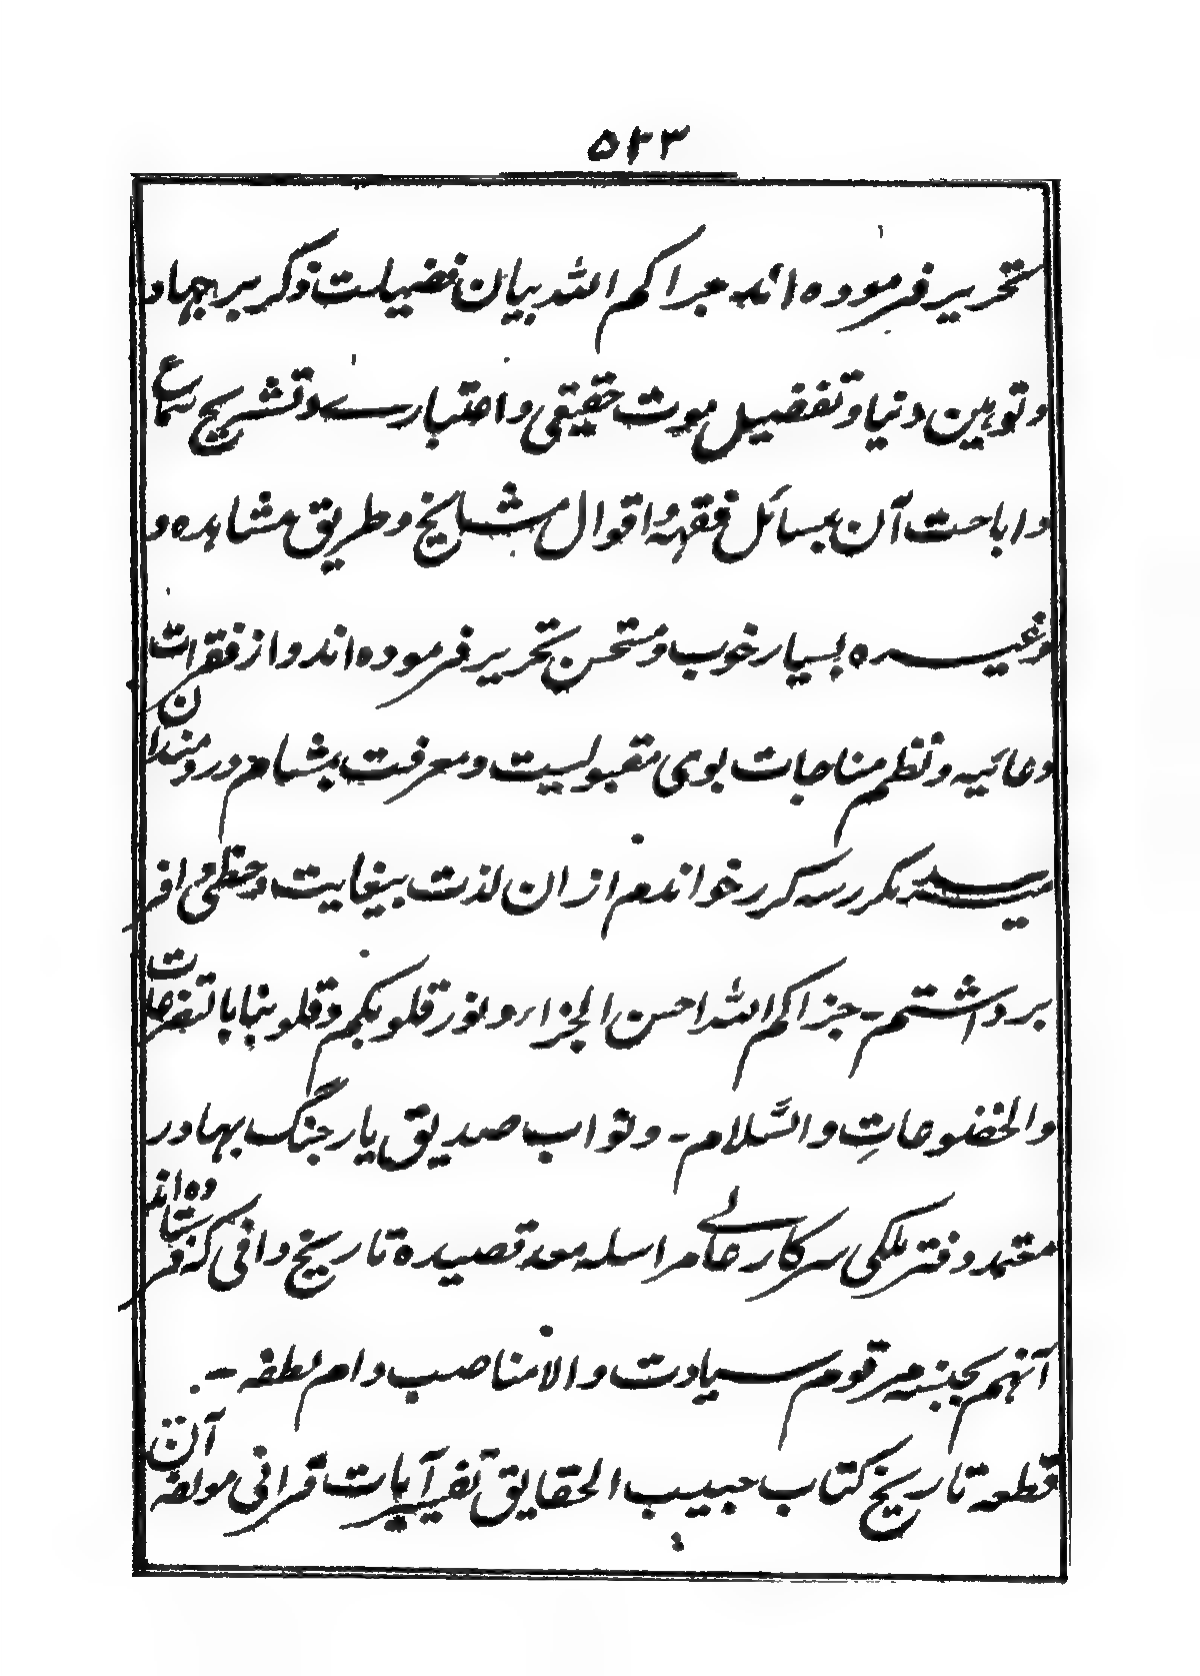 ۵۲۳
تحریر فرموده اند جزاکم الله بیان فضیلت ذکر بر جهاد
و توهین دنیا و تفضیل موت حقیقی و اعتباری و تشریح سماع
و اباحت آن بمسائل فقهه و اقوال مشایخ و طریق مشاهده و
وغیره بسیار خوب و مستحسن تحریر فرموده اند و از فقرات
دعائیه و نظم مناجات بوی مقبولیت و معرفت بمشام دردمندان
میرسد مکرر سه کرر خواندم ازان لذت بیغایت و حظی وافر
برداشتم - جزاکم الله احسن الجزاء و نور قلوبکم و قلوبنا بالتضرعات
والخضوعات والسَّلام - و نواب صدیق یار جنگ بهادر
معتمد دفتر ملکی سرکار عالے مراسله معه قصیده تاریخ وافی که فرستاده اند
آنهم بجنبه مرقوم سیادت والا مناصب دام لطفه -
قطعه تاریخ کتاب حبیب الحقایق تفسیر آیات قرانی مولفه آن